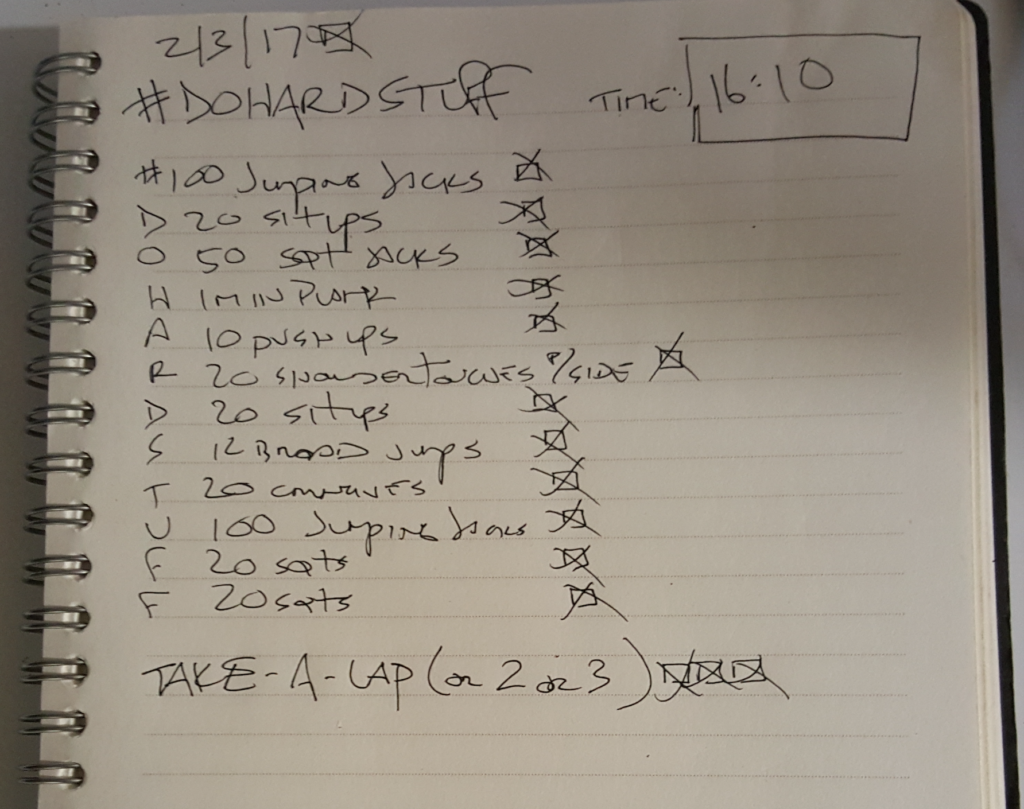 2/3/17
#DOHARDSTUFF TIME: 16:10
#100 Jumping Jacks
D 20 situps
O 50 sqt Jacks
H 1 MIN Plank
A 10 pushups
R 20 shoulder touches P/SIDE
D 20 situps
S 12 Broad Jumps
T 20
U 100 Jumping Jacks
F 20 sqts
F 20 sqts
TAKE-A-LAP (or 2 or 3)